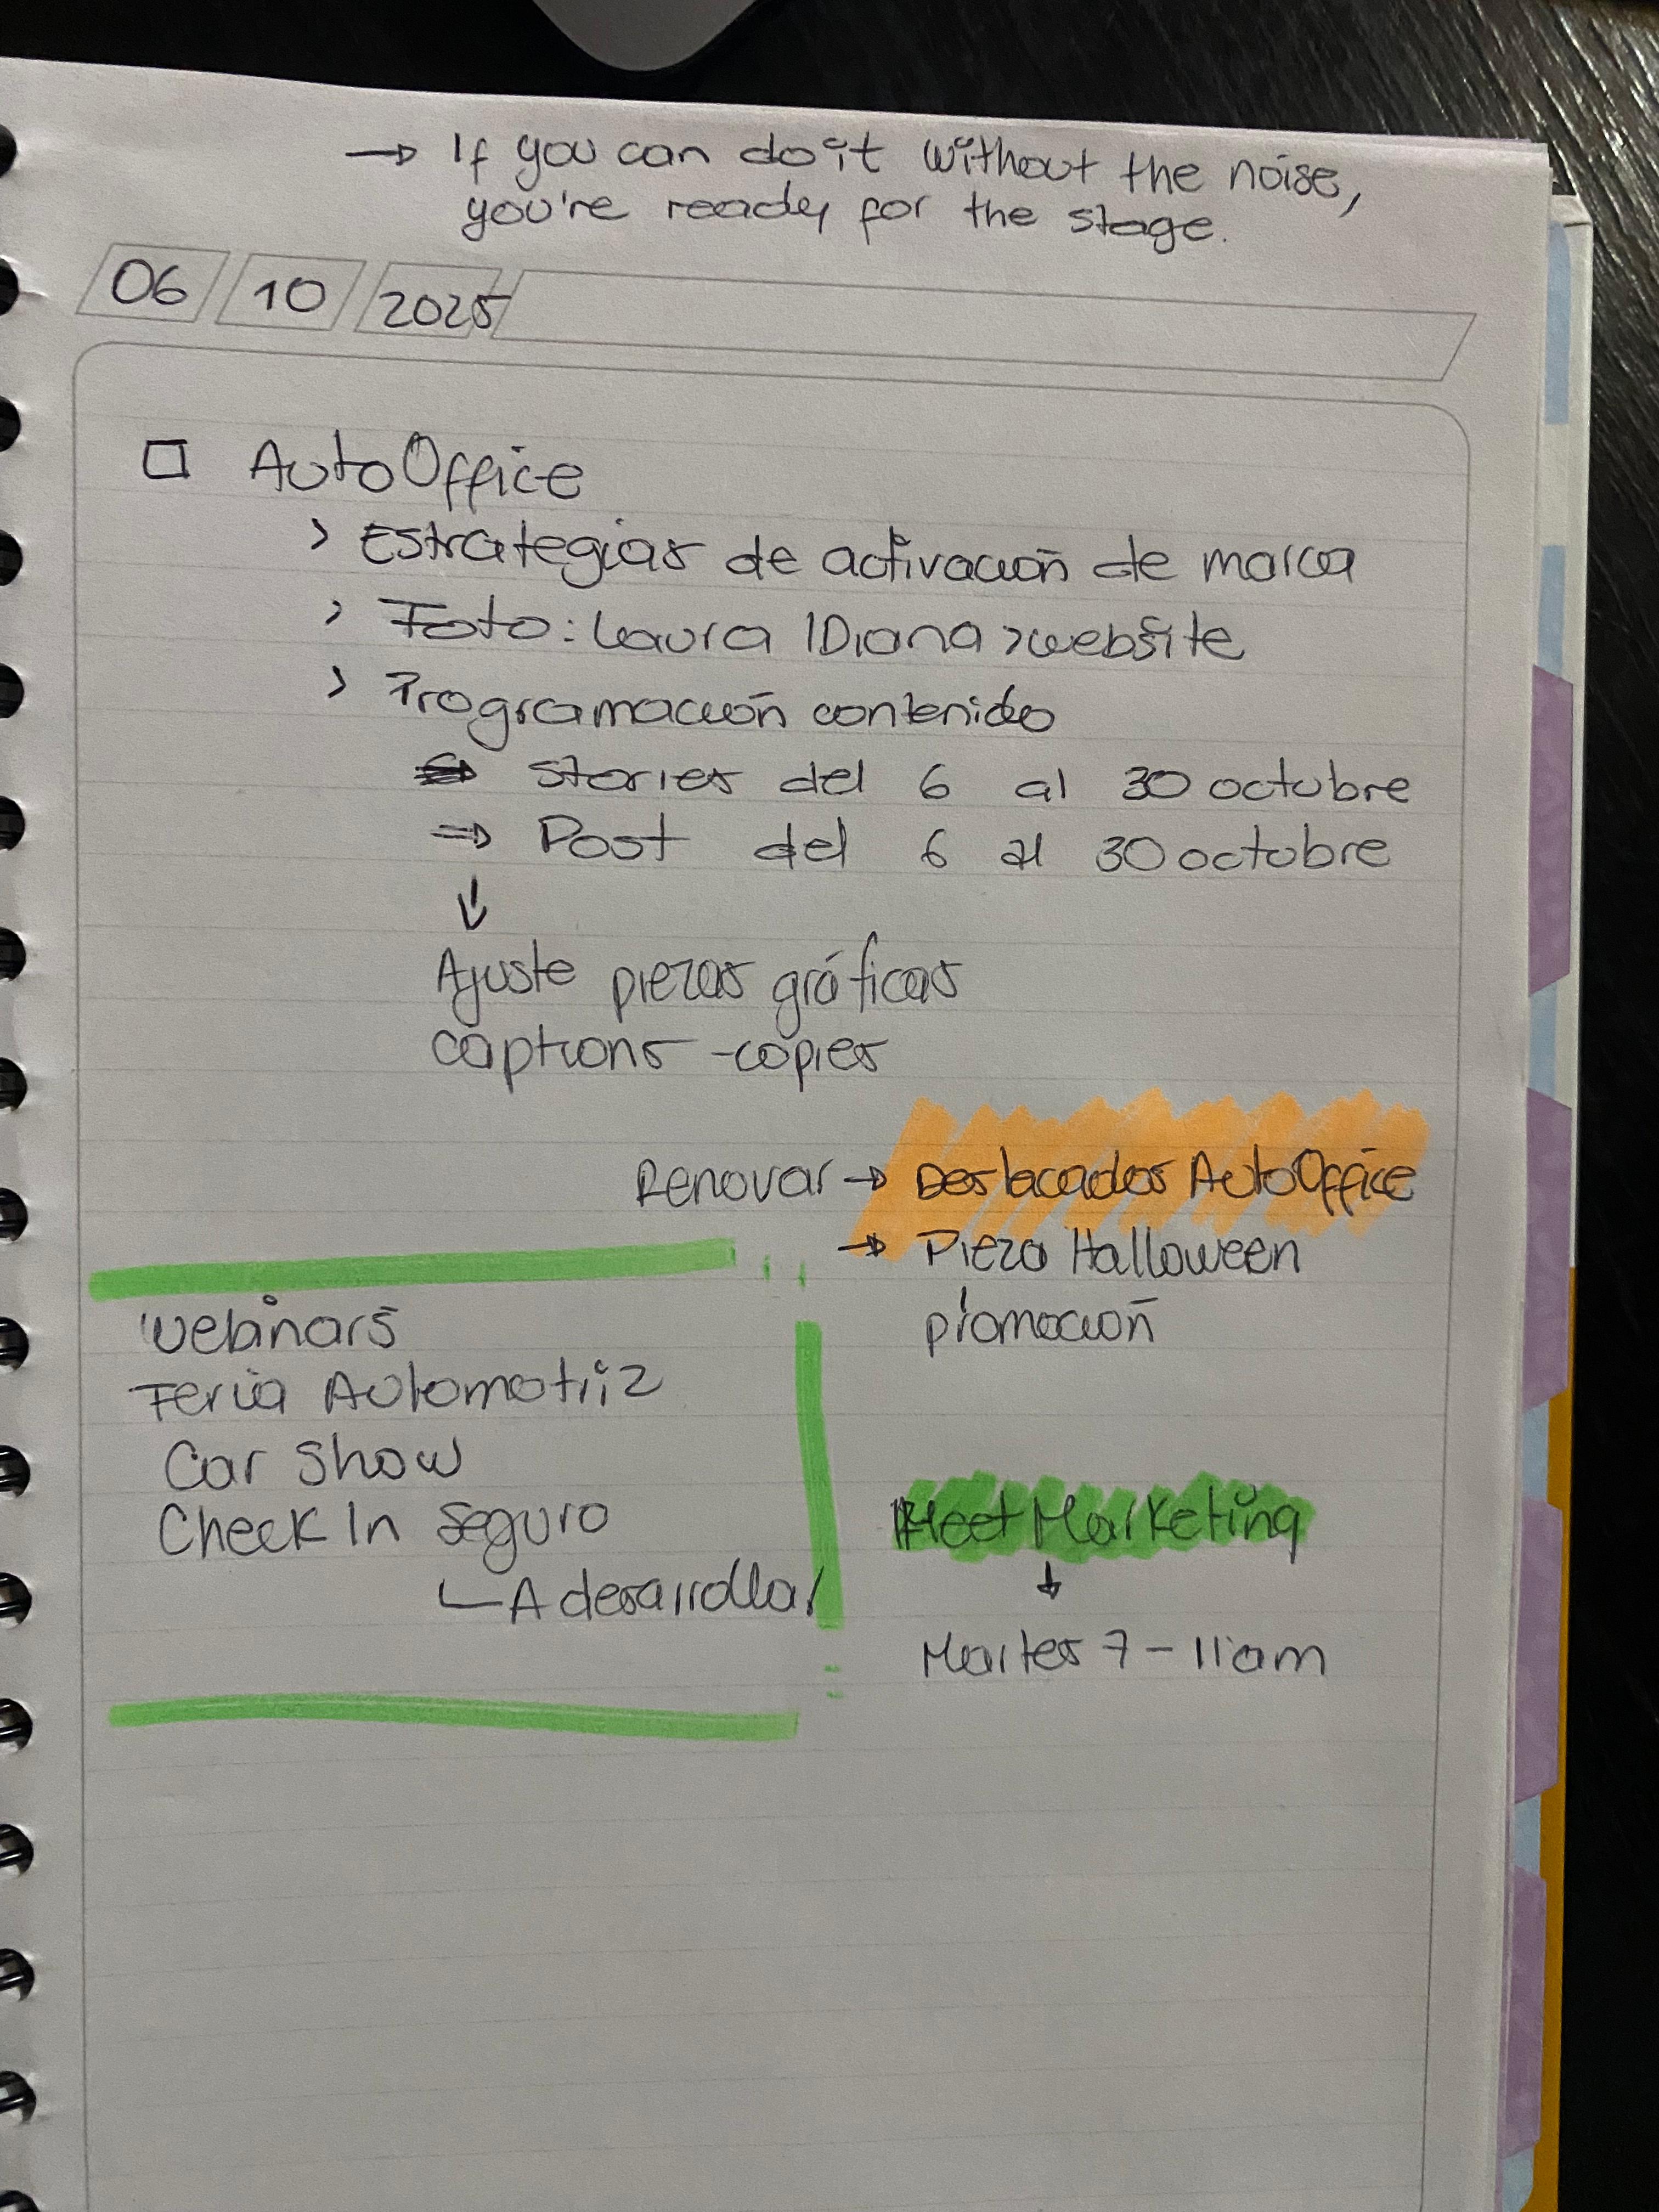 → If you can do it without the noise,
you're ready for the stage.
06 10 2025
□ AutoOffice
> Estrategias de activación de marca
> Foto: Laura | Diana > website
> Programación contenido
⇒ Stories del 6 al 30 octubre
⇒ Post del 6 al 30 octubre
↓
Ajuste piezas gráficas
captions - copies
Renovar → Destacados AutoOffice
→ Pieza Halloween
promoción
Webinars
Feria Automotriz
Car Show
Check In Seguro
A desarrollar
Meet Marketing
↓
Martes 7 - 11am